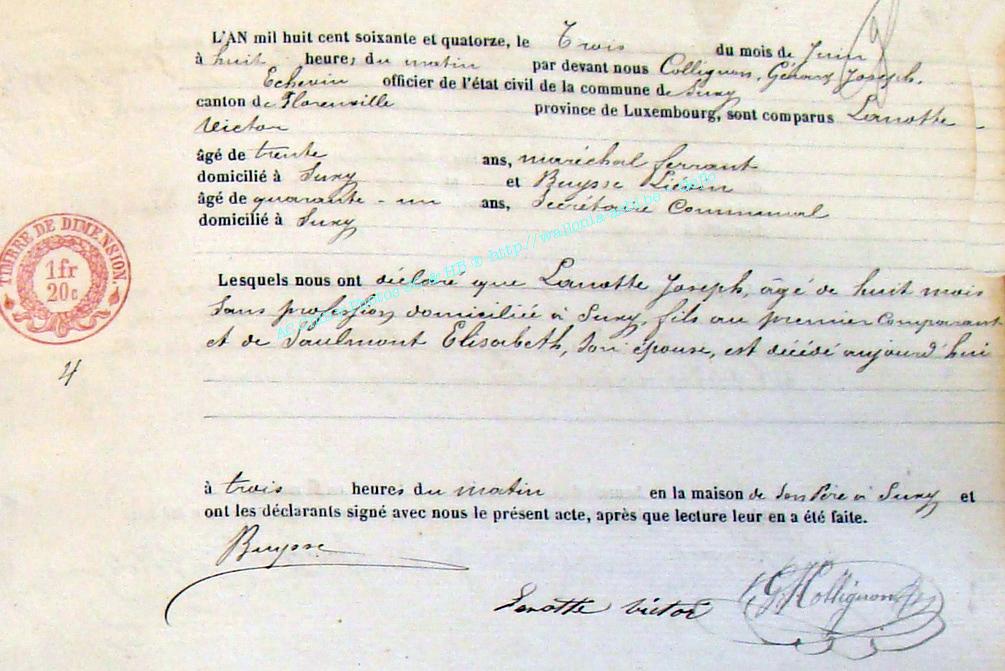 L'AN mil huit cent soixante et quatorze, le Trois du mois de Juin
à huit heures du matin par devant nous Collignon, Gérard Joseph,
Echevin officier de l'état civil de la commune de Suxy
canton de Florenville province de Luxembourg, sont comparus Lanotte
Victor
âgé de trente ans, maréchal ferrant
domicilié à Suxy et Buysse Liévin
âgé de quarante-un ans, Secrétaire Communal
domicilié à Suxy
TIMBRE DE DIMENSION.
1fr
20c
Lesquels nous ont déclaré que Lanotte Joseph, âgé de huit mois
sans profession, domicilié à Suxy, fils au premier comparant
et de Saulmont Elisabeth, son épouse, est décédé aujourd'hui
4
à trois heures du matin en la maison de son Père à Suxy et
ont les déclarants signé avec nous le présent acte, après que lecture leur en a été faite.
Buysse
Lanotte Victor
G J Collignon